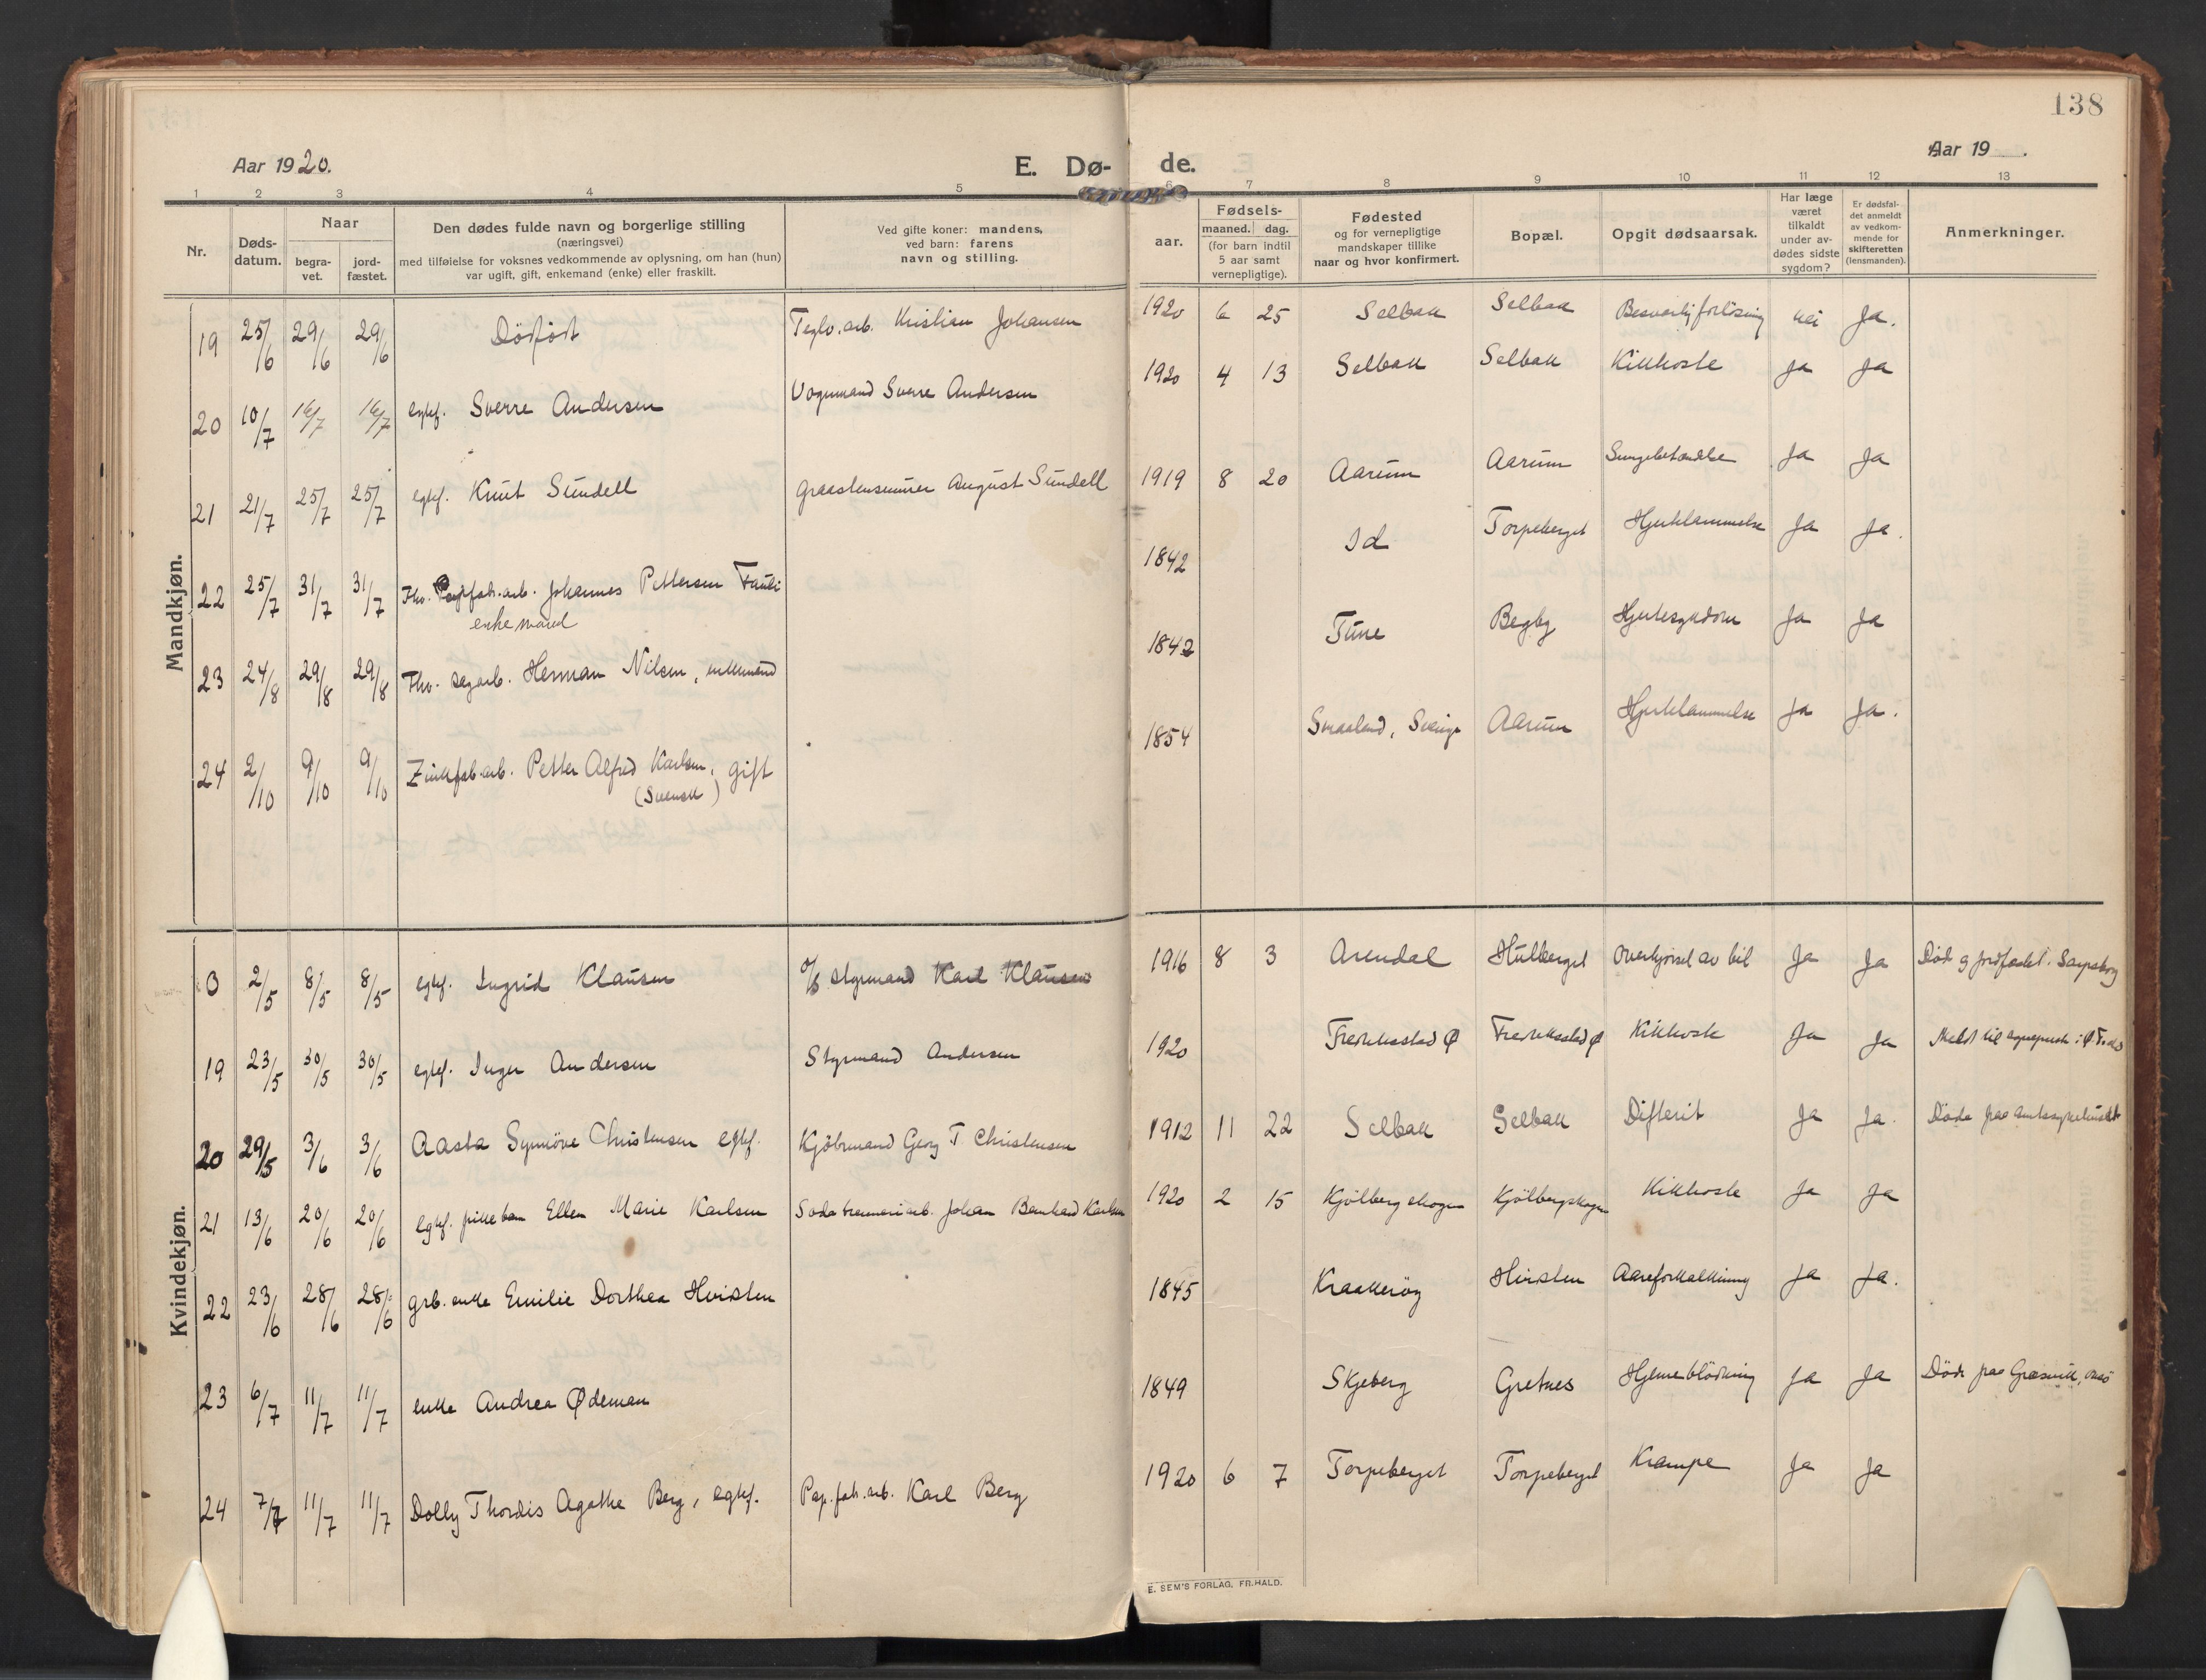 138
Aar 1920.
E. Dø-
de.
Aar 19 .
1 2 3 4 5 6 7 8 9 10 11 12 13
Nr.
Døds-
datum.
Naar
begra-
vet.
jord-
fæstet.
Den dødes fulde navn og borgerlige stilling
(næringsvei)
med tilføielse for voksnes vedkommende av oplysning, om han (hun)
var ugift, gift, enkemand (enke) eller fraskilt.
Ved gifte koner: mandens,
ved barn: farens
navn og stilling.
aar.
Fødsels-
maaned. dag.
(for barn indtil
5 aar samt
vernepligtige).
Fødested
og for vernepligtige
mandskaper tillike
naar og hvor konfirmert.
Bopæl.
Opgit dødsaarsak.
Har læge
været
tilkaldt
under av-
dødes sidste
sygdom?
Er dødsfal-
det anmeldt
av vedkom-
mende for
skifteretten
(lensmanden).
Anmerkninger.
Mandkjøn.
19 25/6 29/6 29/6 Dødfødt Teglv.arb. Kristian Johansen 1920 6 25 Selbak Selbak Besværlig forløsning nei Ja.
20 10/7 16/7 16/7 egtef. Sverre Andersen Vognmand Sverre Andersen 1920 4 13 Selbak Selbak Kikhoste Ja Ja
21 21/7 25/7 25/7 egtef. Knut Sundell Graastensmurer August Sundell 1919 8 20 Aarum Aarum Lungebetændelse Ja Ja
22 25/7 31/7 31/7 Fhv. Papfab.arb. Johannes Pettersen 1842 Id Torpeberget Hjertelammelse Ja Ja.
enkemand
23 24/8 29/8 29/8 Fhv. sagarb. Herman Nilsen, enkemand 1842 Tune Begby Hjertesygdom Ja Ja
24 2/10 9/10 9/10 Zinkfab.arb. Petter Alfred Karlsen, gift 1854 Smaaland, Sverige Aarum Hjertelammelse Ja Ja.
(Svensk)
Kvindekjøn.
2/5 8/5 8/5 egtef. Ingrid Klausen Styrmand Karl Klausen 1916 8 3 Arendal Hulberget Overkjørsel av bil Ja Ja Død og jordfæstet i Sarpsborg
19 23/5 30/5 30/5 egtef. Inger Andersen Styrmand Andersen 1920 Fredrikstad Ø Fredrikstad Ø Kikhoste Ja Ja Meldt til sogneprest i Ø.
20 29/5 3/6 3/6 Aasta Synnöve Christensen egtef. Kjöbmand Georg T Christensen 1912 11 22 Selbak Selbak Difterit Ja Ja. Døde paa amtssykehuset
21 13/6 20/6 20/6 egtef. pikebarn Ellen Marie Karlsen Johan Bernhard Karlsen 1920 2 15 Kjölbergskogen Kjölbergskogen Kikhoste Ja Ja
22 23/6 28/6 28/6 grb. enke Emilie Dorthea Hvidsten 1845 Kraakeröy Hvidsten Aareforkalkning Ja Ja.
23 6/7 11/7 11/7 enke Andrea Ødeman 1849 Skjeberg Gretnes Hjerneblödning Ja Ja Döde paa Græsvik, Onsö
24 7/7 11/7 11/7 Dolly Thordis Agathe Berg, egtef. Pap.fab.arb. Karl Berg 1920 6 7 Torpeberget Torpeberget Krampe Ja Ja
E. SEM'S FORLAG, FR.HALD.